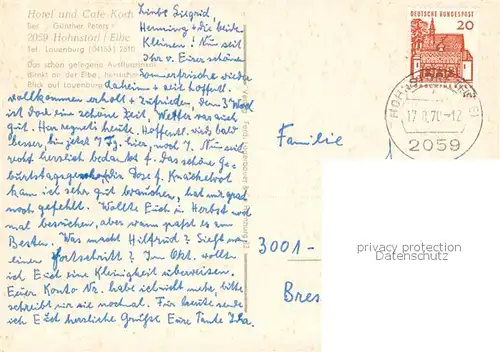 Hotel und Café Koch
Bes.: Günther Peters
2059 Hohnstorf / Elbe
Tel. Lauenburg (04153) 2810
Das schön gelegene Ausflugslokal
direkt an der Elbe, herrlicher
Blick auf Lauenburg
Liebe Siegrid,
Henning + die beide
Kleinen! Nun seit
Ihr v. Eurer schöne
Sommerfrische wieder
daheim + seit hoffentl.
vollkommen erholt + zufrieden, den 3 Wochen
ist doch eine schöne Zeit, Wetter war auch
gut. Hier regnets heute. Hoffentl. wirds bald
besser, bin jetzt 7 Tg. hier, noch 7. Nun seit
recht herzlich bedankt f. das schöne Ge-
burtstagsgeschenk, die Dose f. Knäckebrot
kann ich sehr gut brauchen, hat mir grad
noch gefehlt. Wollte Euch im Herbst noch
mal besuchen, aber wann paßt es am
Besten. Was macht Hilftrud? Sieht man
einen Fortschritt? Im Okt. wollte
ich Euch eine Kleinigkeit überweisen.
Eure Konto Nr. habe ich nicht mehr, bitte
schreibt mir sie nochmal. Für heute sende
ich Euch herzliche Grüße Eure Tante Ika.
DEUTSCHE BUNDESPOST
20
2059
Familie
3001-
Bres
privacy protection
Datenschutz